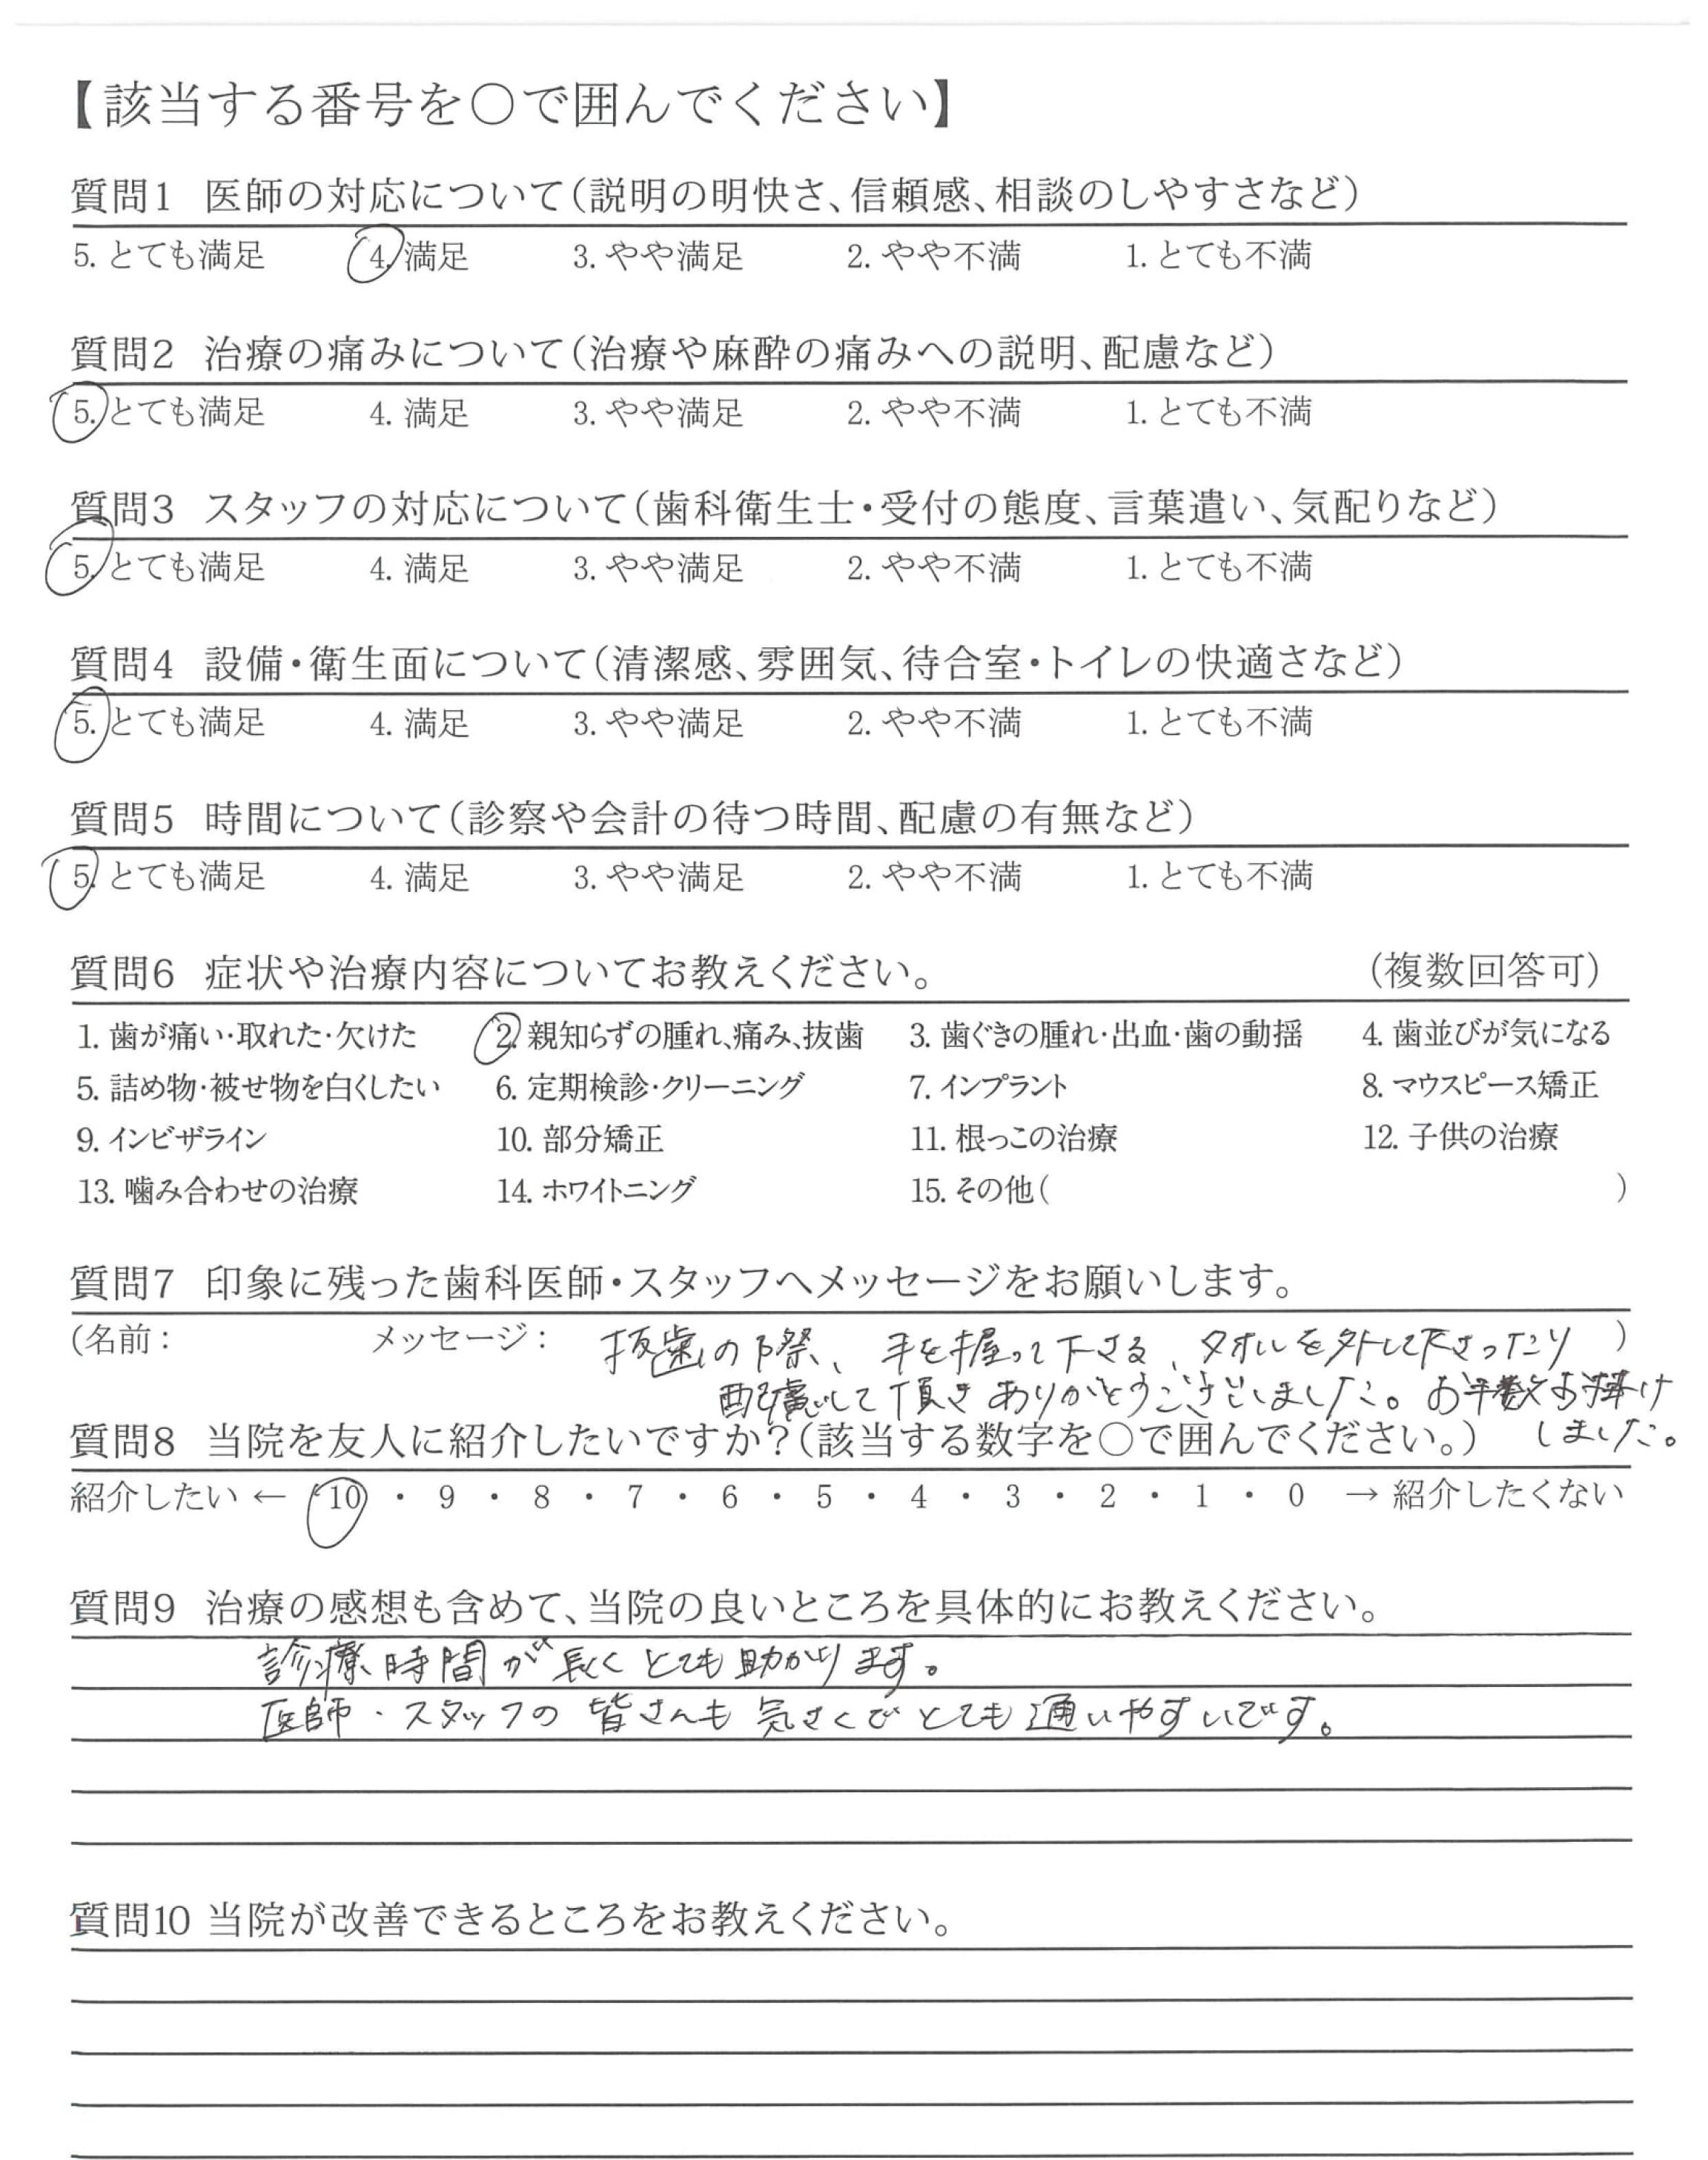 【該当する番号を○で囲んでください】
質問1 医師の対応について(説明の明快さ、信頼感、相談のしやすさなど)
5. とても満足 4. 満足 3. やや満足 2. やや不満 1. とても不満
質問2 治療の痛みについて(治療や麻酔の痛みへの説明、配慮など)
5. とても満足 4. 満足 3. やや満足 2. やや不満 1. とても不満
質問3 スタッフの対応について(歯科衛生士・受付の態度、言葉遣い、気配りなど)
5. とても満足 4. 満足 3. やや満足 2. やや不満 1. とても不満
質問4 設備・衛生面について(清潔感、雰囲気、待合室・トイレの快適さなど)
5. とても満足 4. 満足 3. やや満足 2. やや不満 1. とても不満
質問5 時間について(診察や会計の待つ時間、配慮の有無など)
5. とても満足 4. 満足 3. やや満足 2. やや不満 1. とても不満
質問6 症状や治療内容についてお教えください。 (複数回答可)
1. 歯が痛い・取れた・欠けた 2. 親知らずの腫れ、痛み、抜歯 3. 歯ぐきの腫れ・出血・歯の動揺 4. 歯並びが気になる
5. 詰め物・被せ物を白くしたい 6. 定期検診・クリーニング 7. インプラント 8. マウスピース矯正
9. インビザライン 10. 部分矯正 11. 根っこの治療 12. 子供の治療
13. 噛み合わせの治療 14. ホワイトニング 15. その他( )
質問7 印象に残った歯科医師・スタッフへメッセージをお願いします。
(名前: メッセージ: 抜歯の際、手を握って下さる、タオルを外して下さったり )
配慮して頂きありがとうございました。お手数お掛け
しました。
質問8 当院を友人に紹介したいですか?(該当する数字を○で囲んでください。)
紹介したい ← 10 ・ 9 ・ 8 ・ 7 ・ 6 ・ 5 ・ 4 ・ 3 ・ 2 ・ 1 ・ 0 → 紹介したくない
質問9 治療の感想も含めて、当院の良いところを具体的にお教えください。
診療時間が長くとても助かります。
医師・スタッフの皆さんも気さくでとても通いやすいです。
質問10 当院が改善できるところをお教えください。